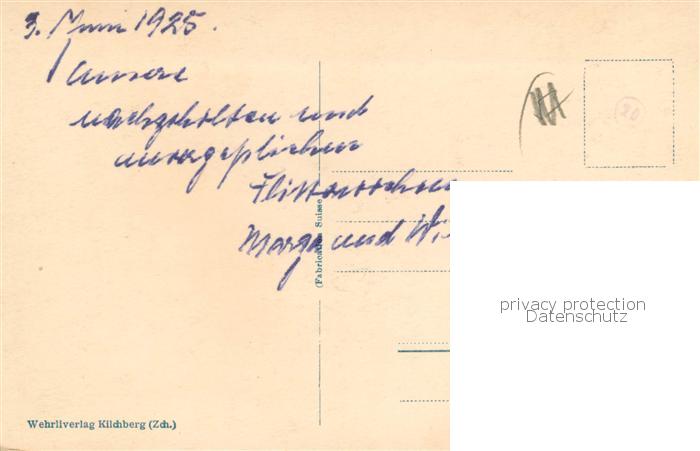 3. Juni 1925.
Unsere
nachgeholten und
unvergeßlichen
Flitterwochen
Marga und Wi
(Fabrication Suisse)
20
privacy protection
Datenschutz
Wehrliverlag Kilchberg (Zch.)